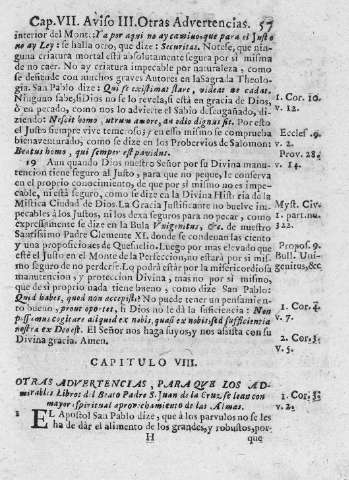 Cap. VII. Aviso III. Otras Advertencias. 57
interior del Mont: Ya por aqui no ay camino, que para el Justo
no ay Ley: se halla otro, que dize: Securitas. Notese, que nin-
guna criatura mortal està absolutamente segura por sì misma
de no caer. No ay criatura impecable por naturaleza, como
se defiende con muchos graves Autores en la Sagra la Theolo-
gia. San Pablo dize: Qui se existimat stare, videat ne cadat.
Ninguno sabe, si Dios no se lo revela, si està en gracia de Dios,
ò en pecado, como nos lo advierte el Sabio desengañado, di-
ziendo: Nescit homo, utrum amore, an odio dignus sit. Por esto
el Justo siempre vive temeroso; y en esso mismo se comprueba
bienaventurado, como se dize en los Probervios de Salomon:
Beatus homo, qui semper est pavidus.
19 Aun quando Dios nuestro Señor por su Divina manu-
tencion tiene seguro al Justo, para que no peque, le conserva
en el proprio conocimiento, de que por sì mismo no es impe-
cable, ni està seguro, como se dize en la Divina Hist ria de la
Mistica Ciudad de Dios. La Gracia Justificante no buelve im-
pecables à los Justos, ni los dexa seguros para no pecar, como
expressamente se dize en la Bula Vnigenitus, &c. de nuestro
Santissimo Padre Clemente XI. donde se condenan las ciento
y una proposiciones de Quesnelio. Luego por mas elevado que
estè el Justo en el Monte de la Perfeccion, no estarà por sì mis-
mo seguro de no perderse. Lo podrà estàr por la misericordiosa
manutencion, y proteccion Divina, mas no por sì mismo,
que de sì proprio nada tiene bueno, como dize San Pablo:
Quid habes, quod non accepisti? No puede tener un pensamien-
to bueno, prout oportet, si Dios no le dà la suficiencia: Non
possumus cogitare aliquid ex nobis, quasi ex nobis: sed sufficientia
nostra ex Deo est. El Señor nos haga suyos, y nos assista con su
Divina gracia. Amen.
1. Cor. 10.
v. 12.
Ecclef. 9.
v. 2.
Prov. 28.
v. 14.
Myst. Civ.
1. part. nu.
322.
Propos. 9.
Bull. Uni-
genitus, &c.
1. Cor. 4.
v. 7.
2. Cor. 3.
v. 5.
CAPITULO VIII.
OTRAS ADVERTENCIAS, PARA QUE LOS AD-
mirables Libros del Beato Padre S. Juan de la Cruz se lean con
mayor spiritual aprovechamiento de las Almas.
1 EL Apostol San Pablo dize, que à los parvulos no se les
ha de dàr el alimento de los grandes, y robustos, por-
1. Cor. 3.
v. 2.
H que